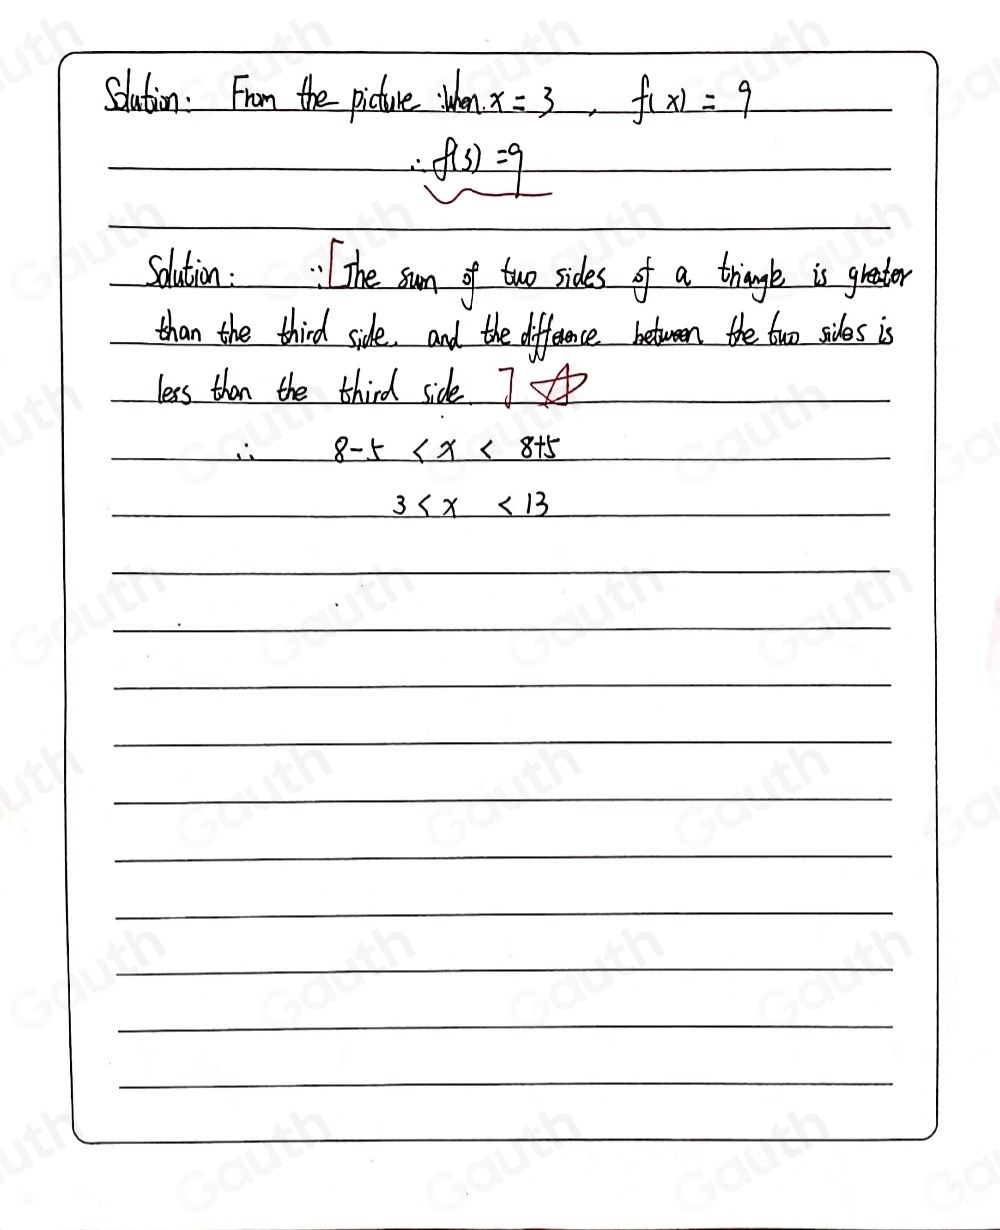 Solution: From the picture : when. x = 3 , f(x) = 9
∴ f(3) = 9
Solution: ∵ [The sum of two sides of a triangle is greater
than the third side. and the difference between the two sides is
less than the third side. ] ☆
∴ 8-5 < x < 8+5
3 < x < 13